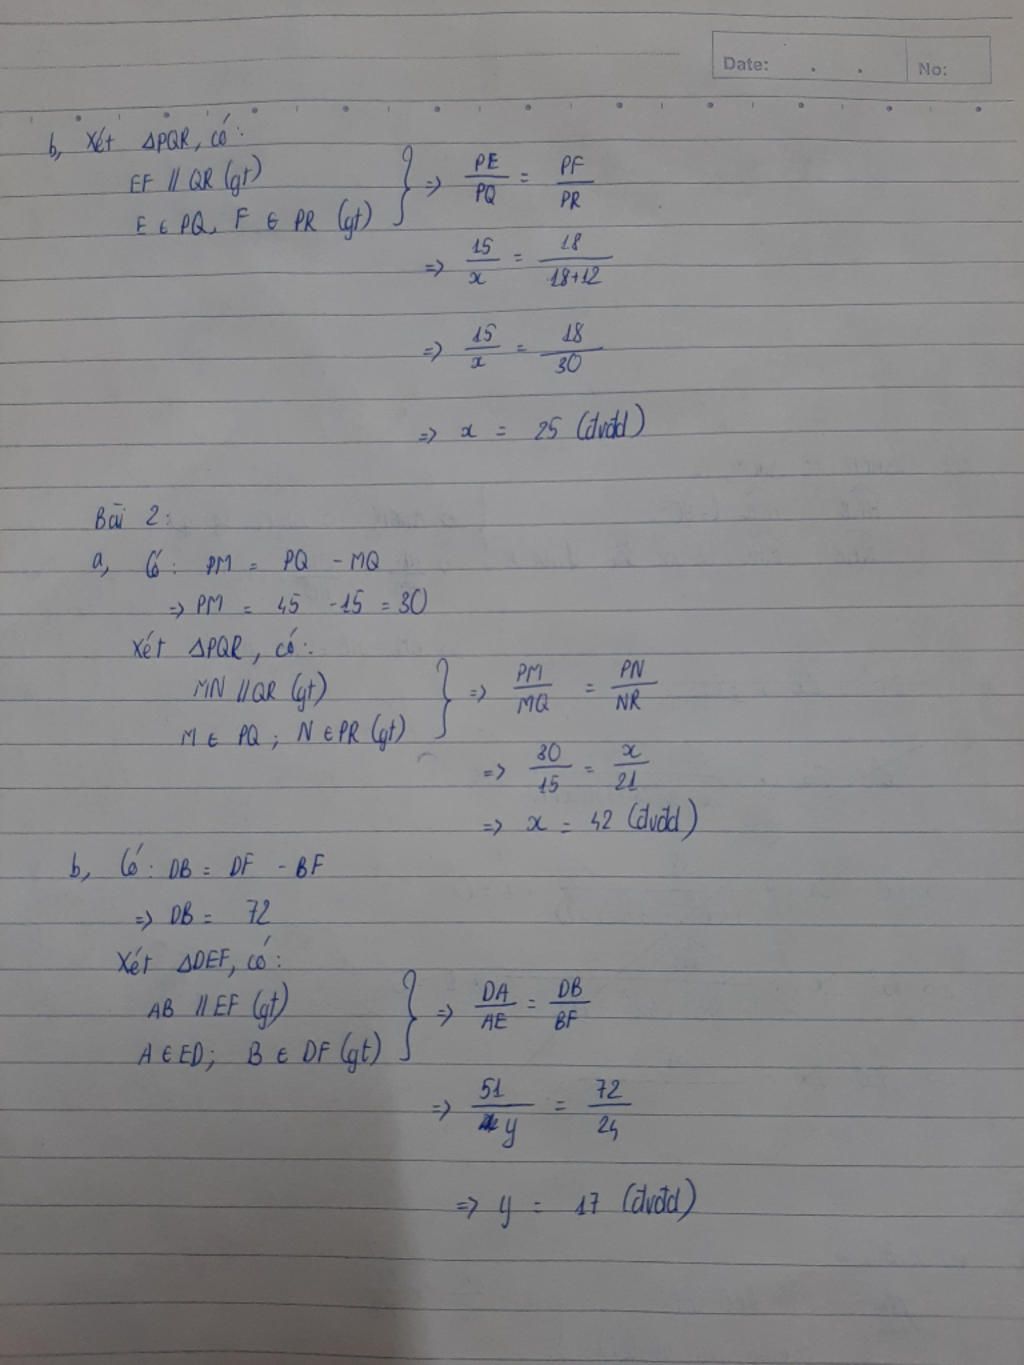 Date: . . No:
b, Xét ΔPQR, có:
EF // QR (gt)
E ∈ PQ, F ∈ PR (gt)
} => PE/PQ = PF/PR
=> 15/x = 18/18+12
=> 15/x = 18/30
=> x = 25 (đvđd)
Bài 2:
a, Có: PM = PQ - MQ
=> PM = 45 - 15 = 30
Xét ΔPQR, có:
MN // QR (gt)
M ∈ PQ; N ∈ PR (gt)
} => PM/MQ = PN/NR
=> 30/15 = x/21
=> x = 42 (đvđd)
b, Có: DB = DF - BF
=> DB = 72
Xét ΔDEF, có:
AB // EF (gt)
A ∈ ED; B ∈ DF (gt)
} => DA/AE = DB/BF
=> 51/y = 72/24
=> y = 17 (đvđd)